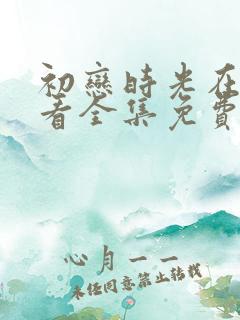 初戀時光在
看全集免費
心月一一
未经同意禁止转载